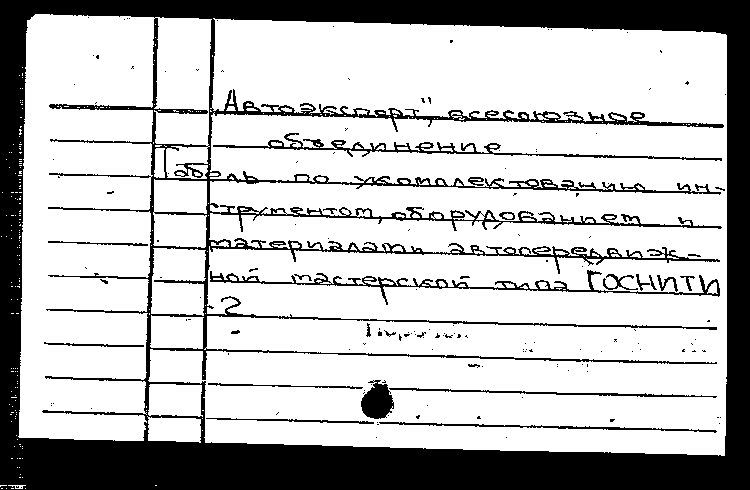 Автоэкспорт", всесоюзное
объединение
Табель по укомплектованию ин-
струментом, оборудованием и
материалами автопередвиж-
ной мастерской типа ГОСНИТИ
-2